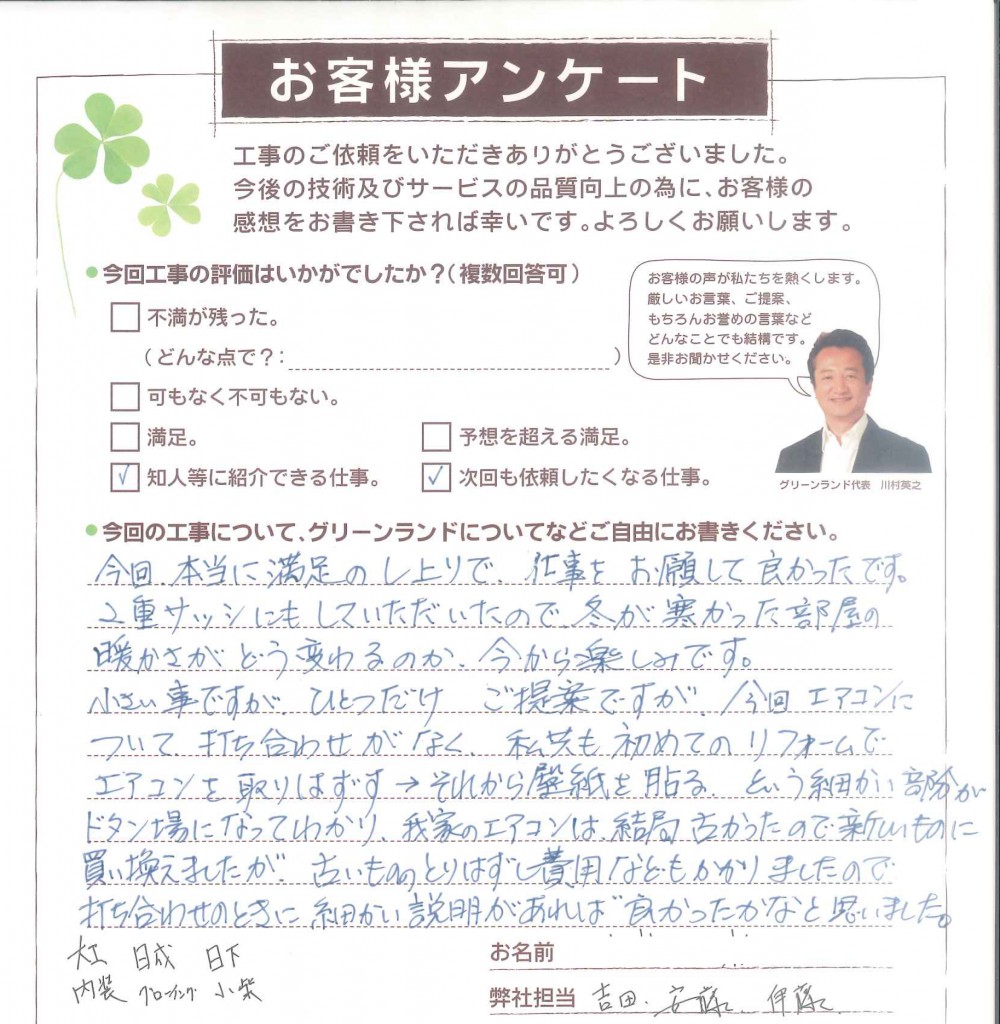 お客様アンケート
工事のご依頼をいただきありがとうございました。
今後の技術及びサービスの品質向上の為に、お客様の
感想をお書き下されば幸いです。よろしくお願いします。
今回工事の評価はいかがでしたか?(複数回答可)
不満が残った。
(どんな点で?: )
可もなく不可もない。
満足。
予想を超える満足。
✓ 知人等に紹介できる仕事。
✓ 次回も依頼したくなる仕事。
お客様の声が私たちを熱くします。
厳しいお言葉、ご提案、
もちろんお誉めの言葉など
どんなことでも結構です。
是非お聞かせください。
グリーンランド代表 川村英之
今回の工事について、グリーンランドについてなどご自由にお書きください。
今回、本当に満足のし上りで、仕事をお願して良かったです。
2重サッシにもしていただいたので、冬が寒かった部屋の
暖かさがどう変わるのか、今から楽しみです。
小さい事ですが、ひとつだけ ご提案ですが、今回エアコンに
ついて、打ち合わせがなく、私共も初めてのリフォームで
エアコンを取りはずす→それから壁紙を貼る、という細かい部分が
ドタン場になってわかり、我家のエアコンは、結局古かったので新しいものに
買い換えましたが、古いもののとりはずし費用などもかかりましたので
打ち合わせのときに細かい説明があれば良かったかなと思いました。
大工 日成 日下
内装 グローイング 小柴
お名前
弊社担当 吉田、安藤、伊藤